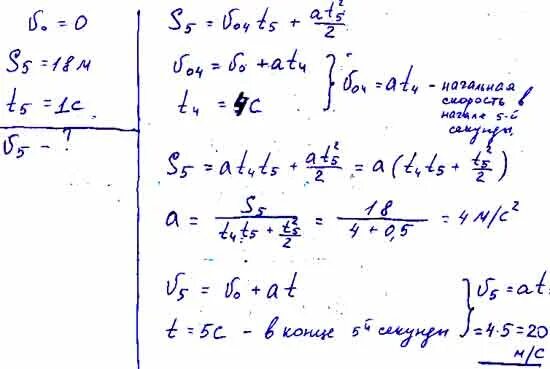 υ₀ = 0
S₅ = 18 м
t₅ = 1 с
υ₅ - ?
S₅ = υ₀₄ t₅ + at₅²/2
υ₀₄ = υ₀ + at₄
t₄ = 4с
} υ₀₄ = at₄ - начальная
скорость в
начале 5-й
секунды
S₅ = at₄t₅ + at₅²/2 = a(t₄t₅ + t₅²/2)
a = S₅/(t₄t₅ + t₅²/2) = 18/(4 + 0,5) = 4 м/с²
υ₅ = υ₀ + at
t = 5с - в конце 5й секунды
} υ₅ = at
= 4·5 = 20
м/с